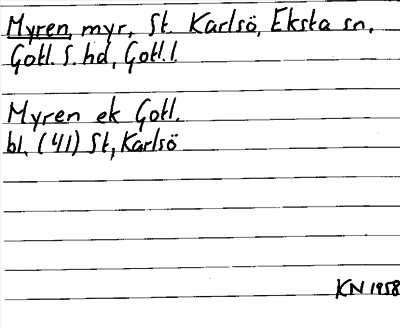 Myren, myr, St. Karlsö, Eksta sn,
Gotl. S. hd, Gotl. l.
Myren ek Gotl.
bl. (41) St, Karlsö
KN 1958